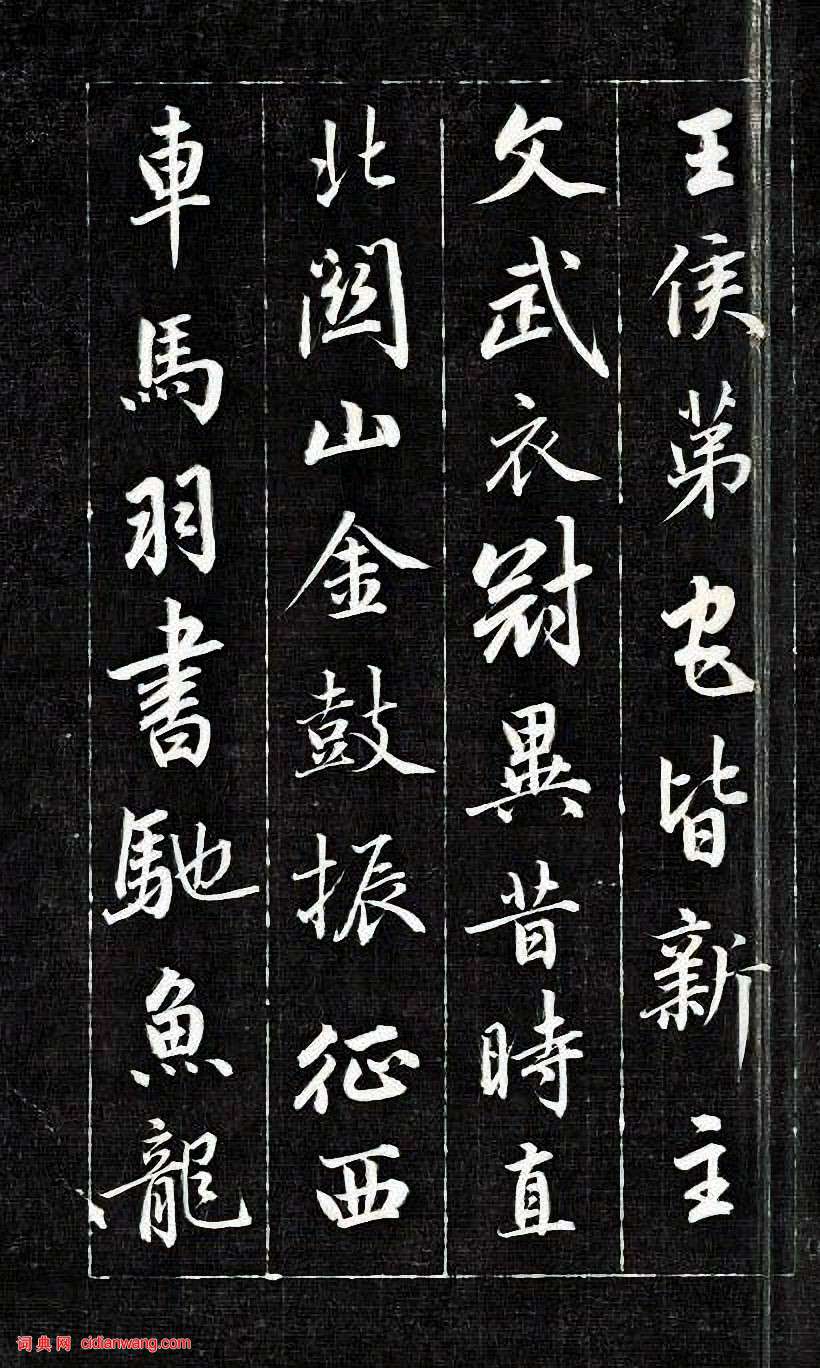 王侯苐宅皆新主
文武衣冠異昔時直
北關山金鼓振征西
車馬羽書馳魚龍
词典网 cidianwang.com